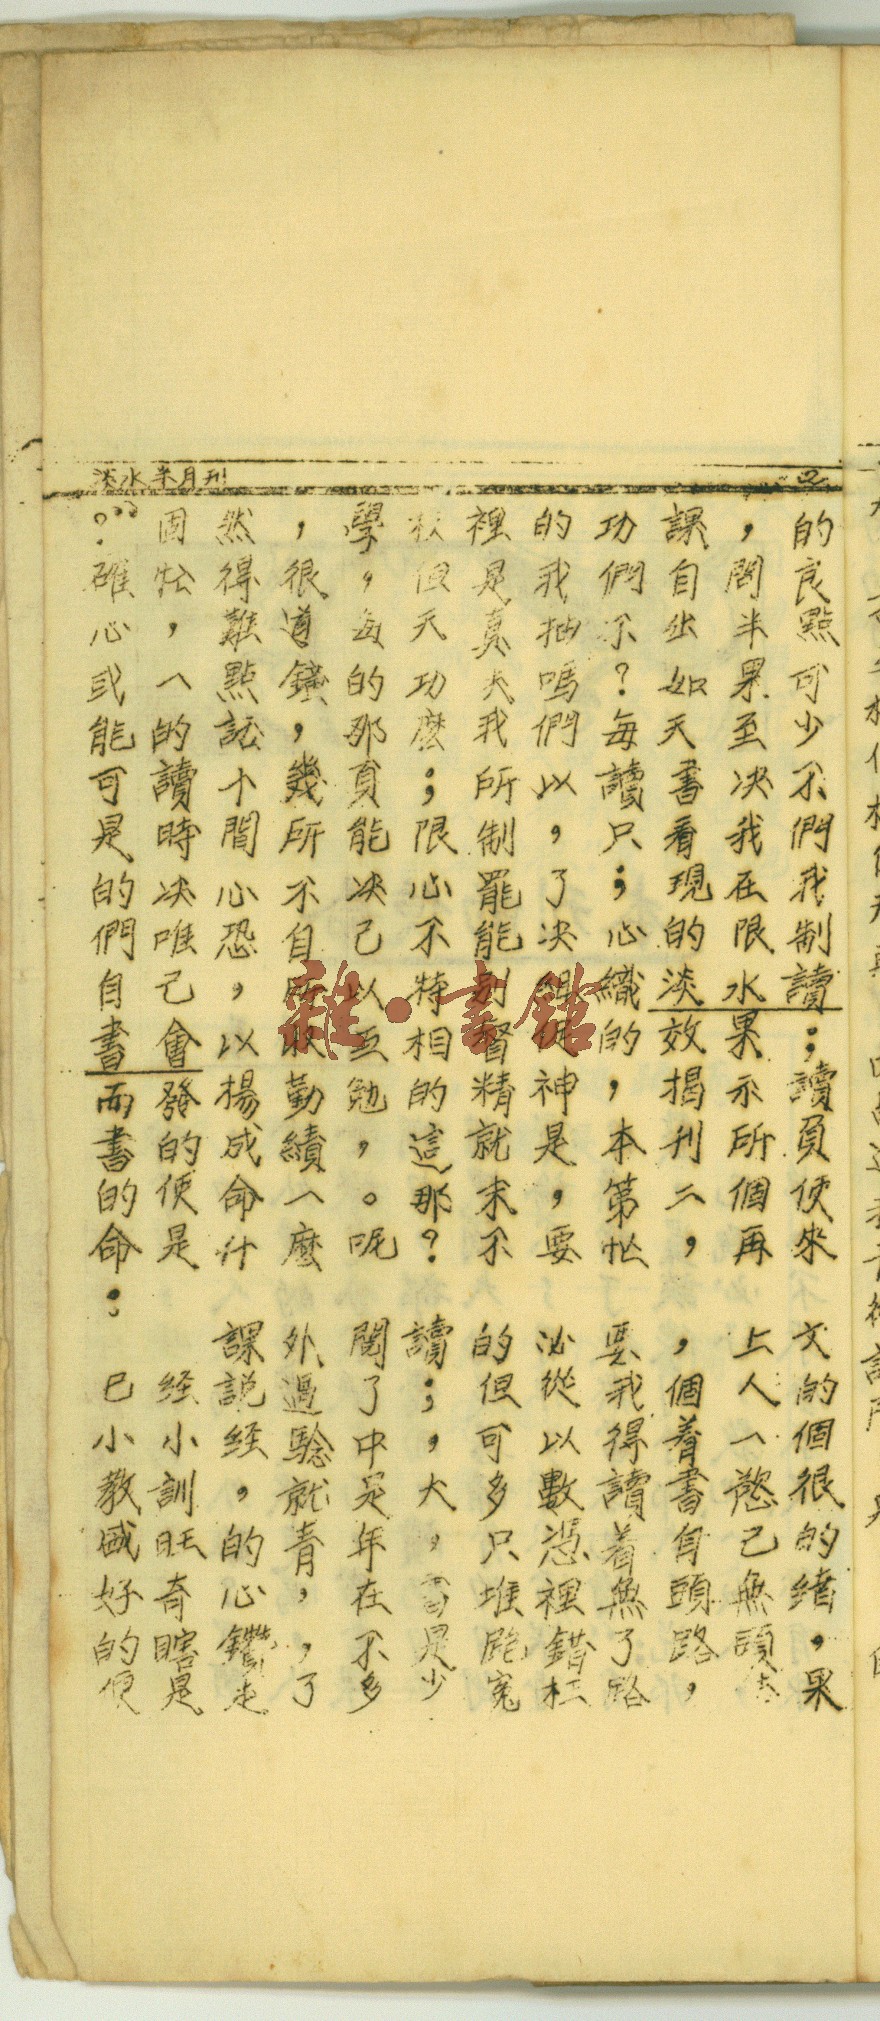 淡水半月刊
固然，學校裡的功課，的
？確忙得很，但是我們自問良
心，難道每天真抽不出半點
或一點鐘的功夫嗎？如果可
能的話，那麼我們每天至少
可讀十幾頁；所以，讀書決不
是時間所能限制，只看我們
的決心不決心罷了；現在我
們唯恐自己不能決心的限制
自己，所以特別組織淡水讀
書會以收互相督促的效果；
而發揚勤勉的精神，揭示讀
書的成績，這就是本刊所負
的使命一。那末，第二個使
命：是什麼呢？不要忙，再來
課外閱讀的必要，上文
已經說過了；但從我個人的
小小經驗中，可以得着一個
教訓，就是大多數讀書慾很
盛旺的青年，只憑着自己的
好奇心，在書堆裡無頭無緒
的瞎鑽，不是錯了路頭，
便是走了多少冤枉路，果